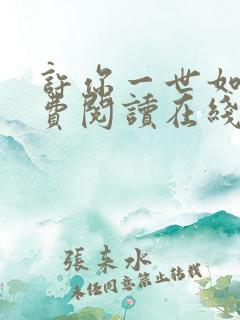 許你一世如
費閱讀在綫
張來水
未经同意禁止转载